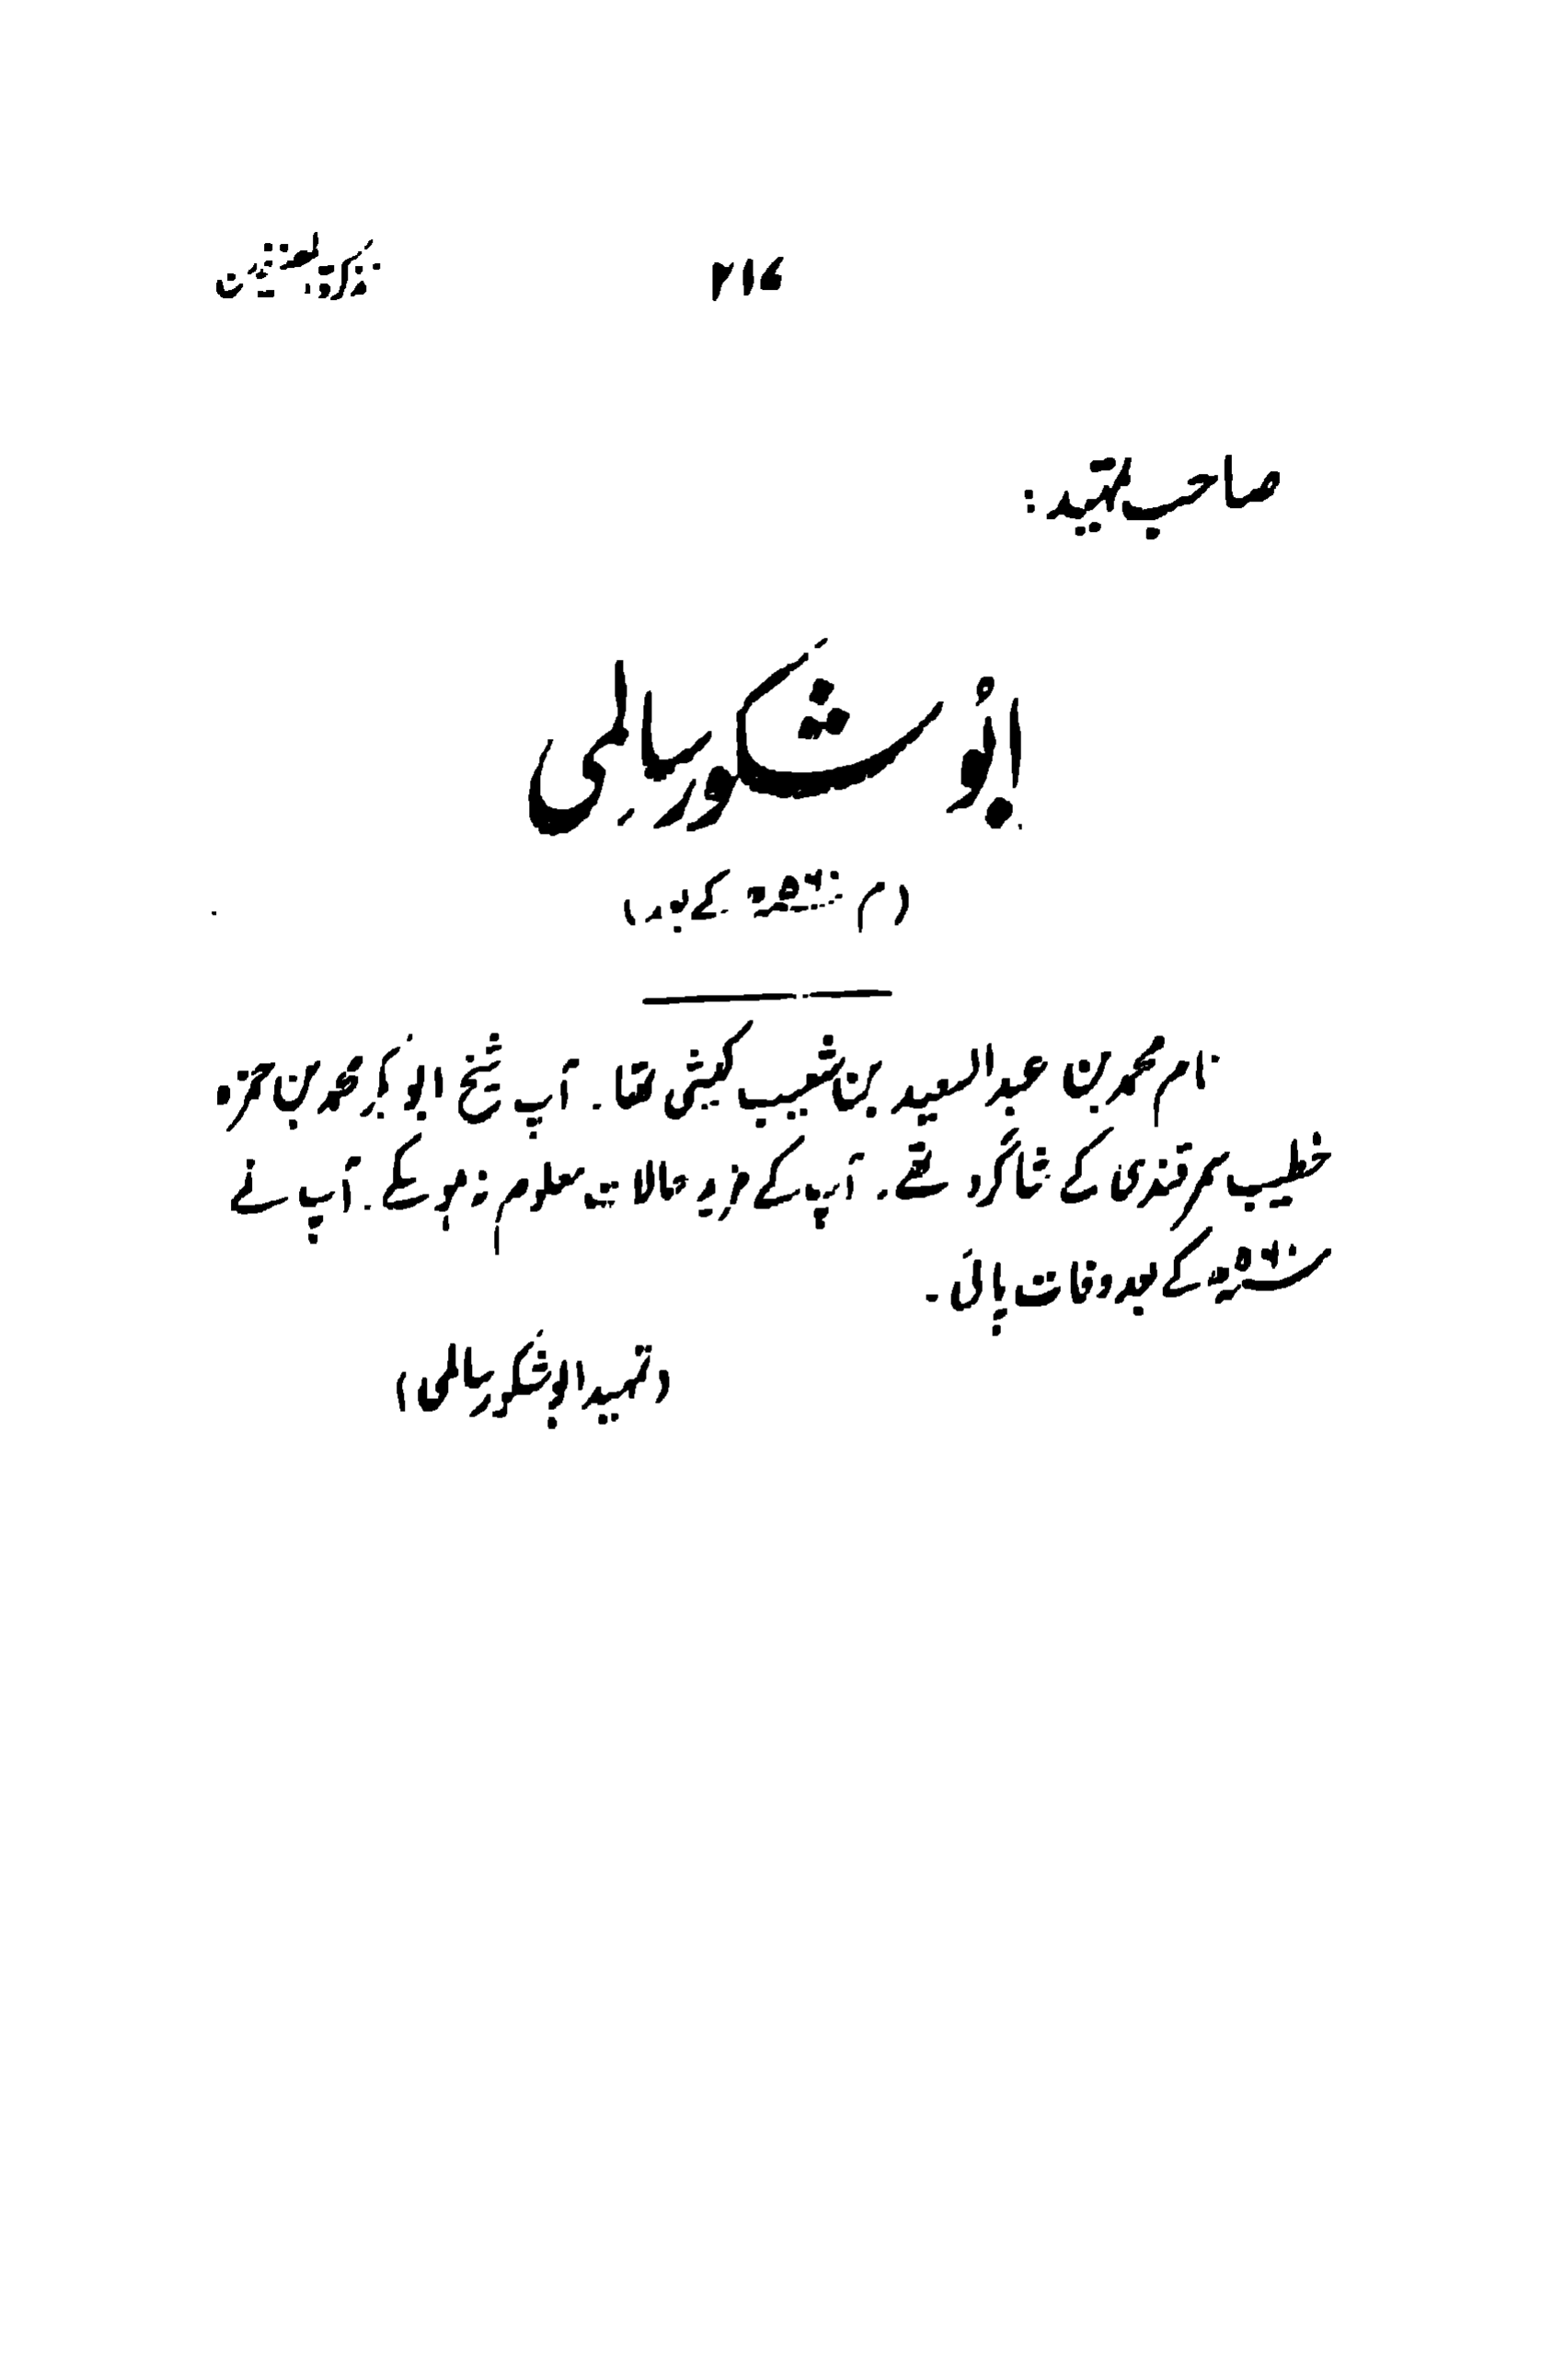 تذکرۃ المصنفین
۲۱۶
صاحب تمہید :
ابُو شکور سالمی
(م ۵۶۰ھ کے بعد)
نام محمد بن عبد السعید بن شعیب کشی تھا۔ آپ شیخ ابو بکر محمد بن حمزہ
خطیب سمرقندی کے شاگرد تھے۔ آپ کے مزید حالات معلوم نہ ہو سکے۔ آپ نے
۵۶۰ھ کے بعد وفات پائی۔
(تمہید ابو شکور سالمی)